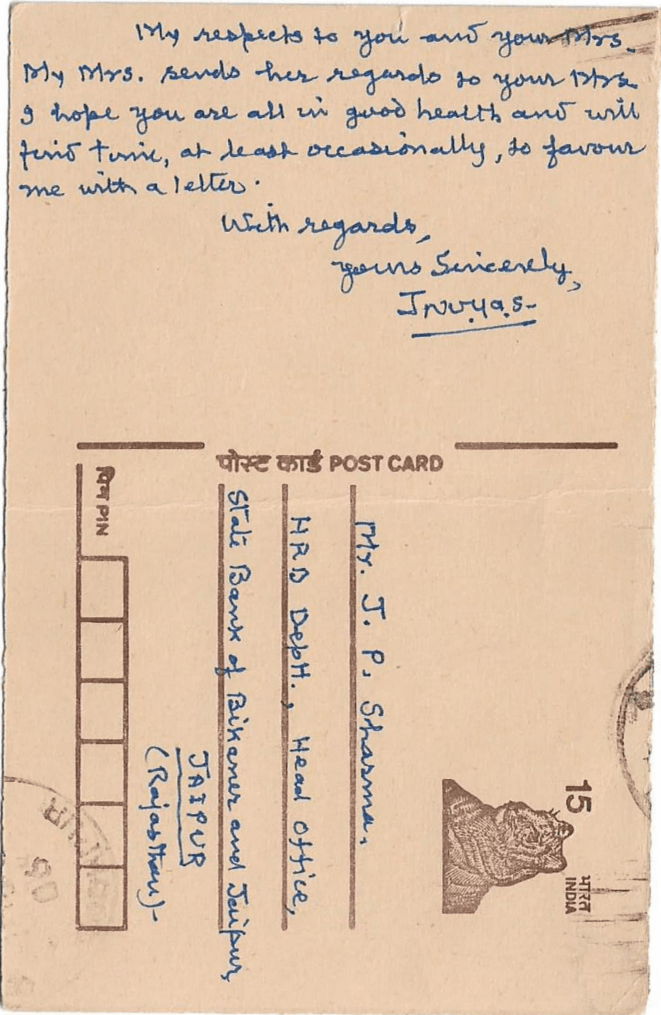 My respects to you and your Mrs.
My Mrs. sends her regards to your Mrs.
I hope you are all in good health and will
find time, at least occasionally, to favour
me with a letter.
With regards,
Yours Sincerely,
पोस्ट कार्ड POST CARD
Mr. J. P. Sharma,
HRD Deptt., Head Office,
State Bank of Bikaner and Jaipur,
JAIPUR
(Rajasthan)-
पिन PIN
15
भारत
INDIA